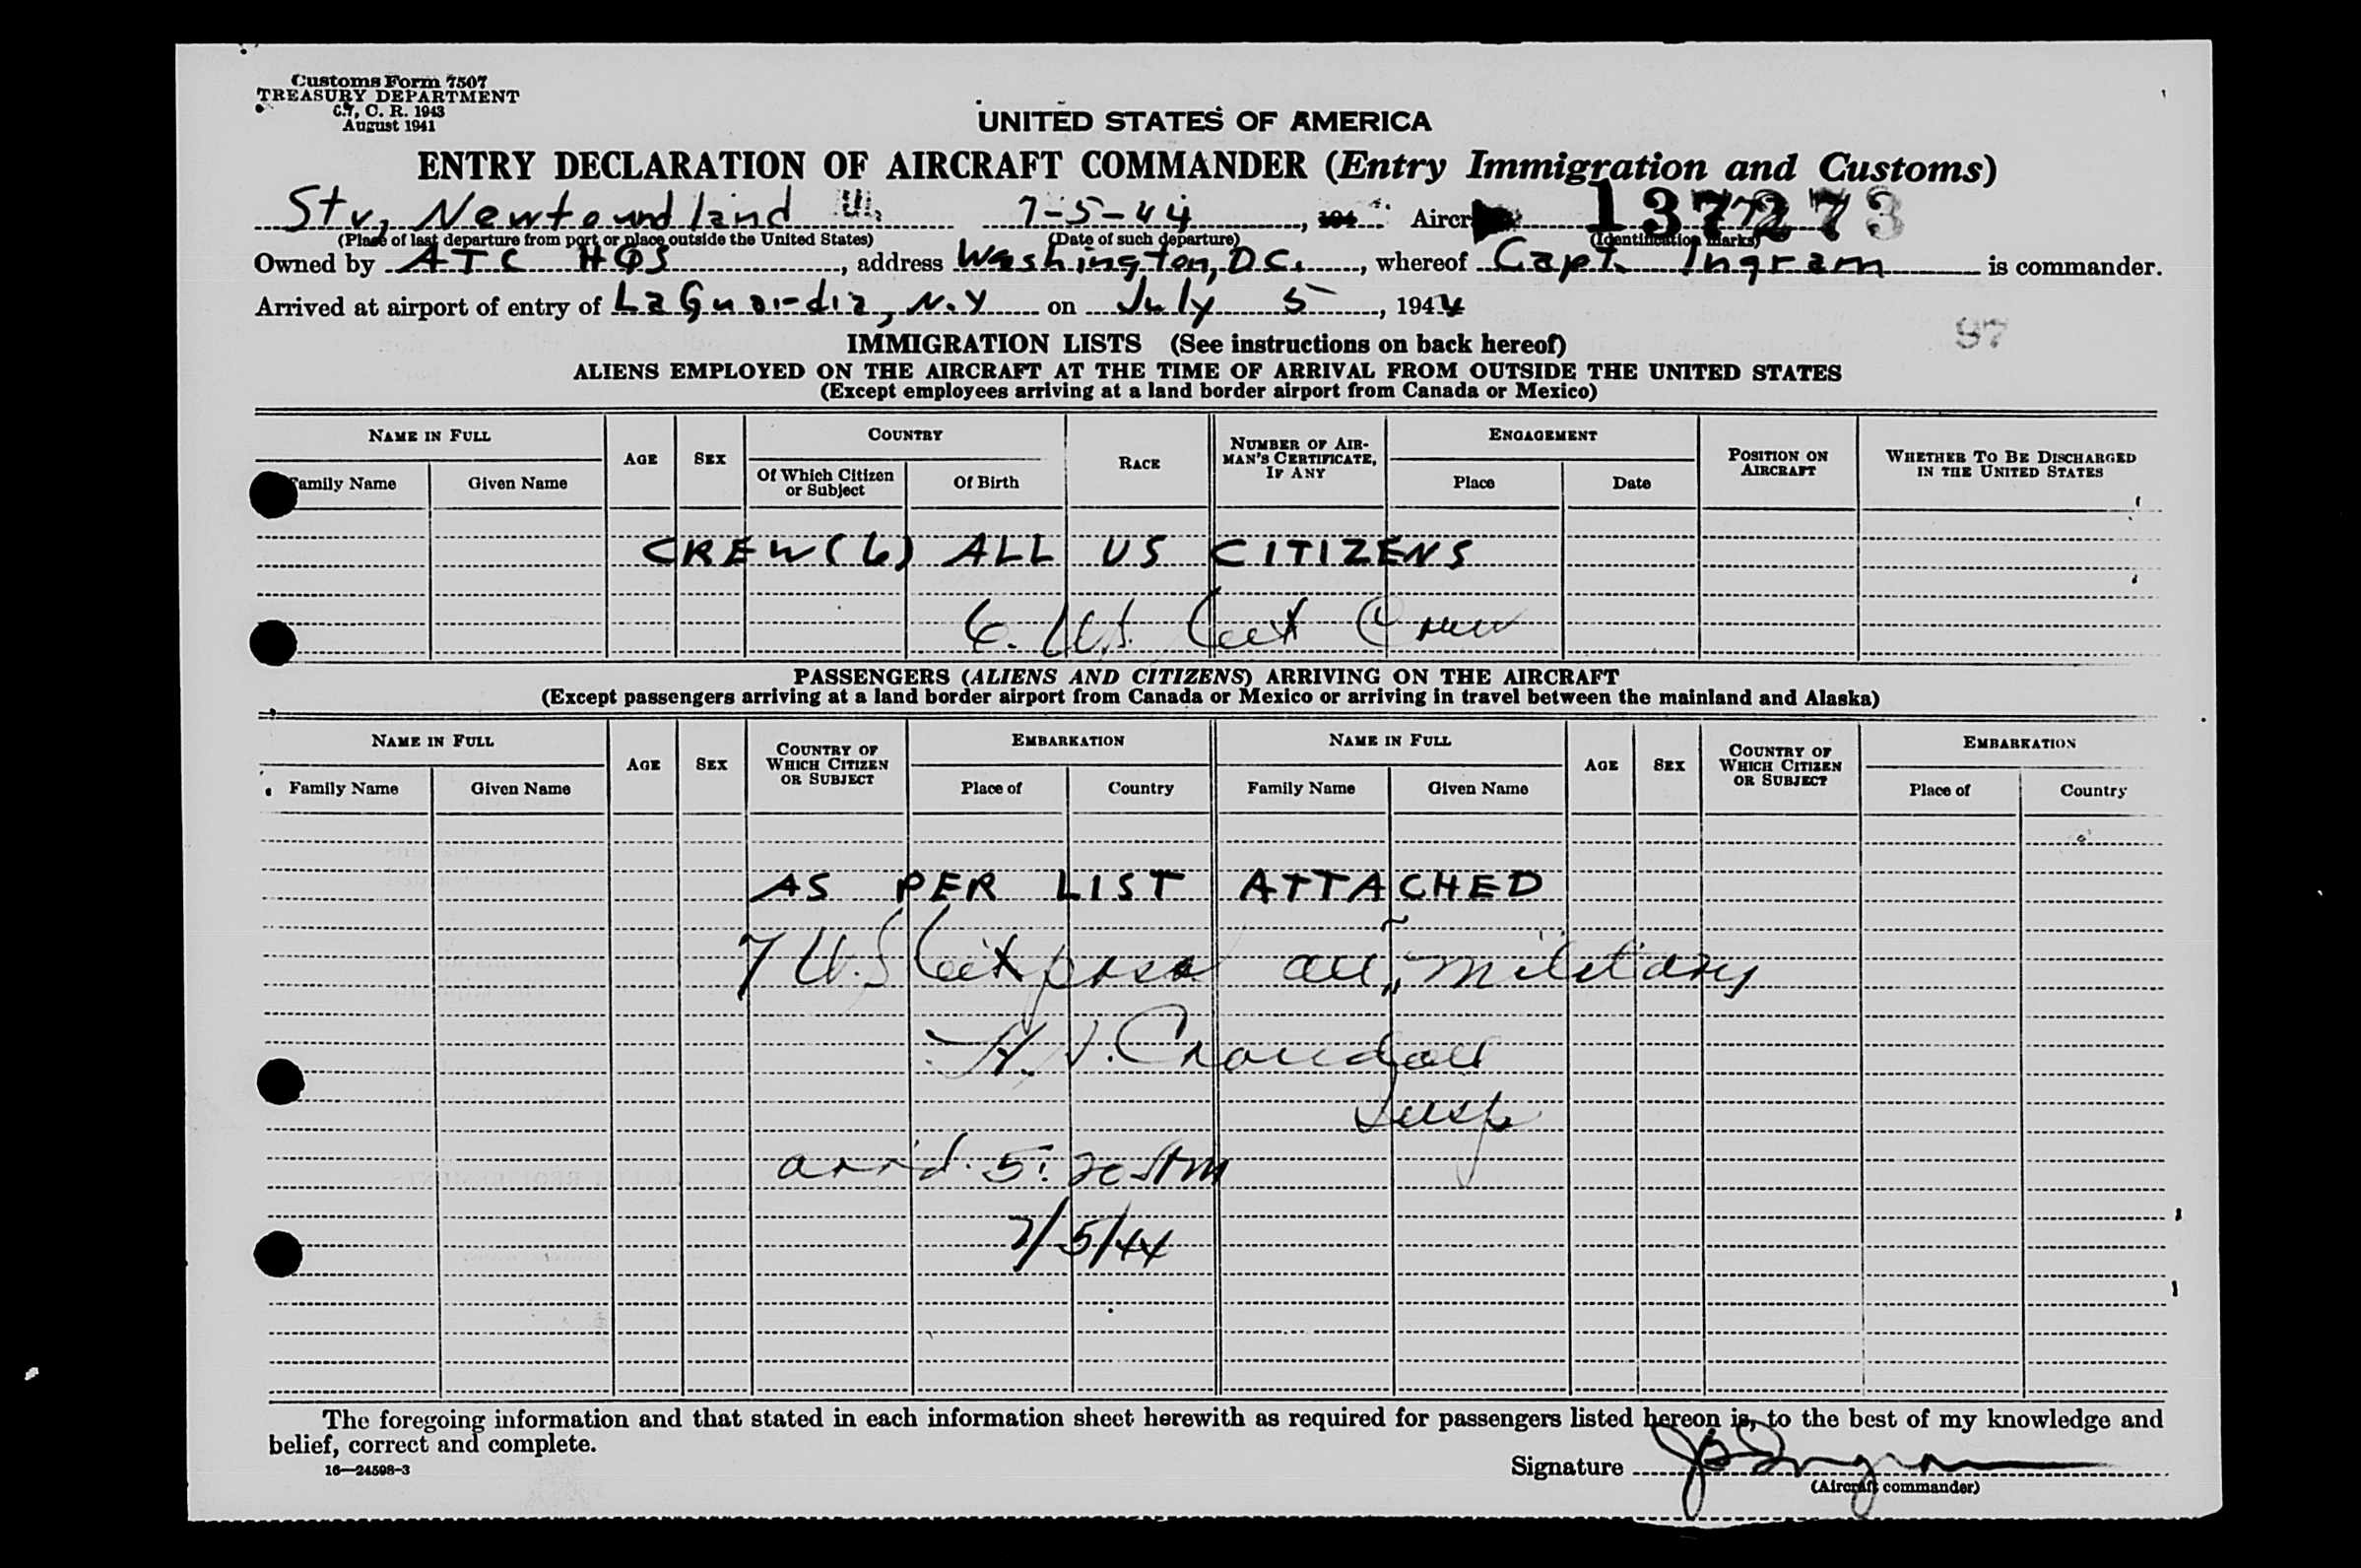 Customs Form 7507
TREASURY DEPARTMENT
C.7, C. R. 1943
August 1941
UNITED STATES OF AMERICA
ENTRY DECLARATION OF AIRCRAFT COMMANDER (Entry Immigration and Customs)
Stv, Newfoundland 7-5-44, 194 Aircr
(Place of last departure from port or place outside the United States) (Date of such departure) (Identification marks)
Owned by ATC HQS, address Washington, D.C., whereof Capt. Ingram is commander.
Arrived at airport of entry of LaGuardia, N.Y on July 5, 1944
97
IMMIGRATION LISTS (See instructions on back hereof)
ALIENS EMPLOYED ON THE AIRCRAFT AT THE TIME OF ARRIVAL FROM OUTSIDE THE UNITED STATES
(Except employees arriving at a land border airport from Canada or Mexico)
NAME IN FULL AGE SEX COUNTRY RACE NUMBER OF AIRMAN'S CERTIFICATE, IF ANY ENGAGEMENT POSITION ON AIRCRAFT WHETHER TO BE DISCHARGED IN THE UNITED STATES
Family Name Given Name Of Which Citizen or Subject Of Birth Place Date
CREW (6) ALL US CITIZENS
6. U.S. Cit Crew
PASSENGERS (ALIENS AND CITIZENS) ARRIVING ON THE AIRCRAFT
(Except passengers arriving at a land border airport from Canada or Mexico or arriving in travel between the mainland and Alaska)
NAME IN FULL AGE SEX COUNTRY OF WHICH CITIZEN OR SUBJECT EMBARKATION NAME IN FULL AGE SEX COUNTRY OF WHICH CITIZEN OR SUBJECT EMBARKATION
Family Name Given Name Place of Country Family Name Given Name Place of Country
AS PER LIST ATTACHED
7 U.S. Cit pass all military
Crandall
Insp
arr'd. 5:20 AM
7/5/44
The foregoing information and that stated in each information sheet herewith as required for passengers listed hereon is, to the best of my knowledge and
belief, correct and complete.
16—24598-3
Signature J Ingram
(Aircraft commander)